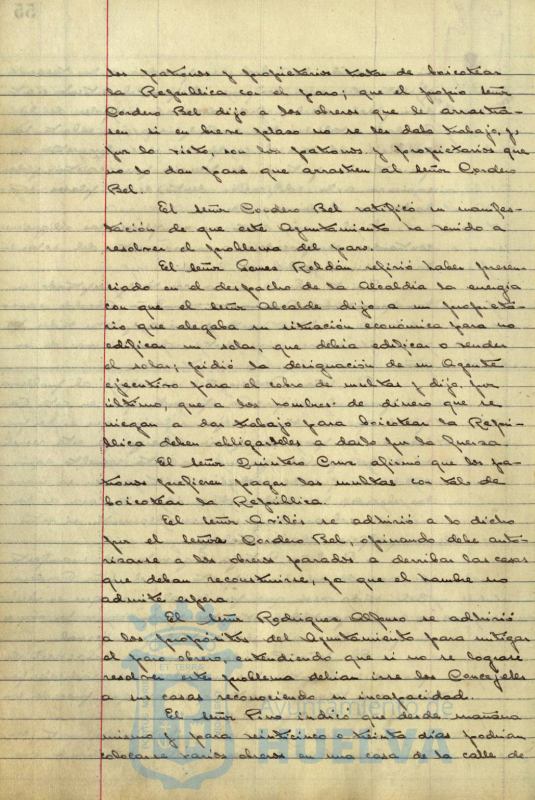 los patronos y propietarios tratan de boicotear
la República con el paro; que el propio señor
Cordero Bel dijo a los obreros que le arrastra-
sen si en breve plazo no se les daba trabajo, y,
por lo visto, son los patronos y propietarios que
no lo dan para que arrastren al señor Cordero
Bel.
El señor Cordero Bel ratificó su manifes-
tación de que este Ayuntamiento ha venido a
resolver el problema del paro.
El señor Gomez Roldán refirió haber presen-
ciado en el despacho de la Alcaldía la energía
con que el señor Alcalde dijo a un propieta-
rio que alegaba su situación económica para no
edificar un solar, que debía edificar o vender
el solar; pidió la designación de un Agente
ejecutivo para el cobro de multas y dijo, por
último, que a los hombres de dinero que se
niegan a dar trabajo para boicotear la Repú-
blica deben obligarseles a darlo por la fuerza.
El señor Quintero Cruz afirmó que los pa-
tronos prefieren pagar las multas con tal de
boicotear la República.
El señor Avilés se adhirió a lo dicho
por el señor Cordero Bel, opinando debe auto-
rizarse a los obreros parados a derribar las casas
que deban reconstruirse, ya que el hambre no
admite espera.
El señor Rodriguez Alfonso se adhirió
a los propósitos del Ayuntamiento para mitigar
el paro obrero, entendiendo que si no se lograse
resolver este problema debían irse los Concejales
a sus casas reconociendo su incapacidad.
El señor Pino indicó que desde mañana
mismo y para veinticinco o treinta días podrían
colocarse varios obreros en una casa de la calle de
Ayuntamiento de
HUELVA